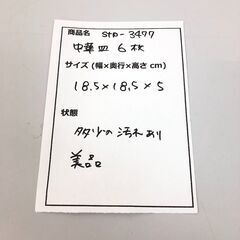 商品名 stp-3477
中華皿 6枚
サイズ (幅×奥行×高さ cm)
18.5×18.5×5
状態
多少の汚れあり
美品